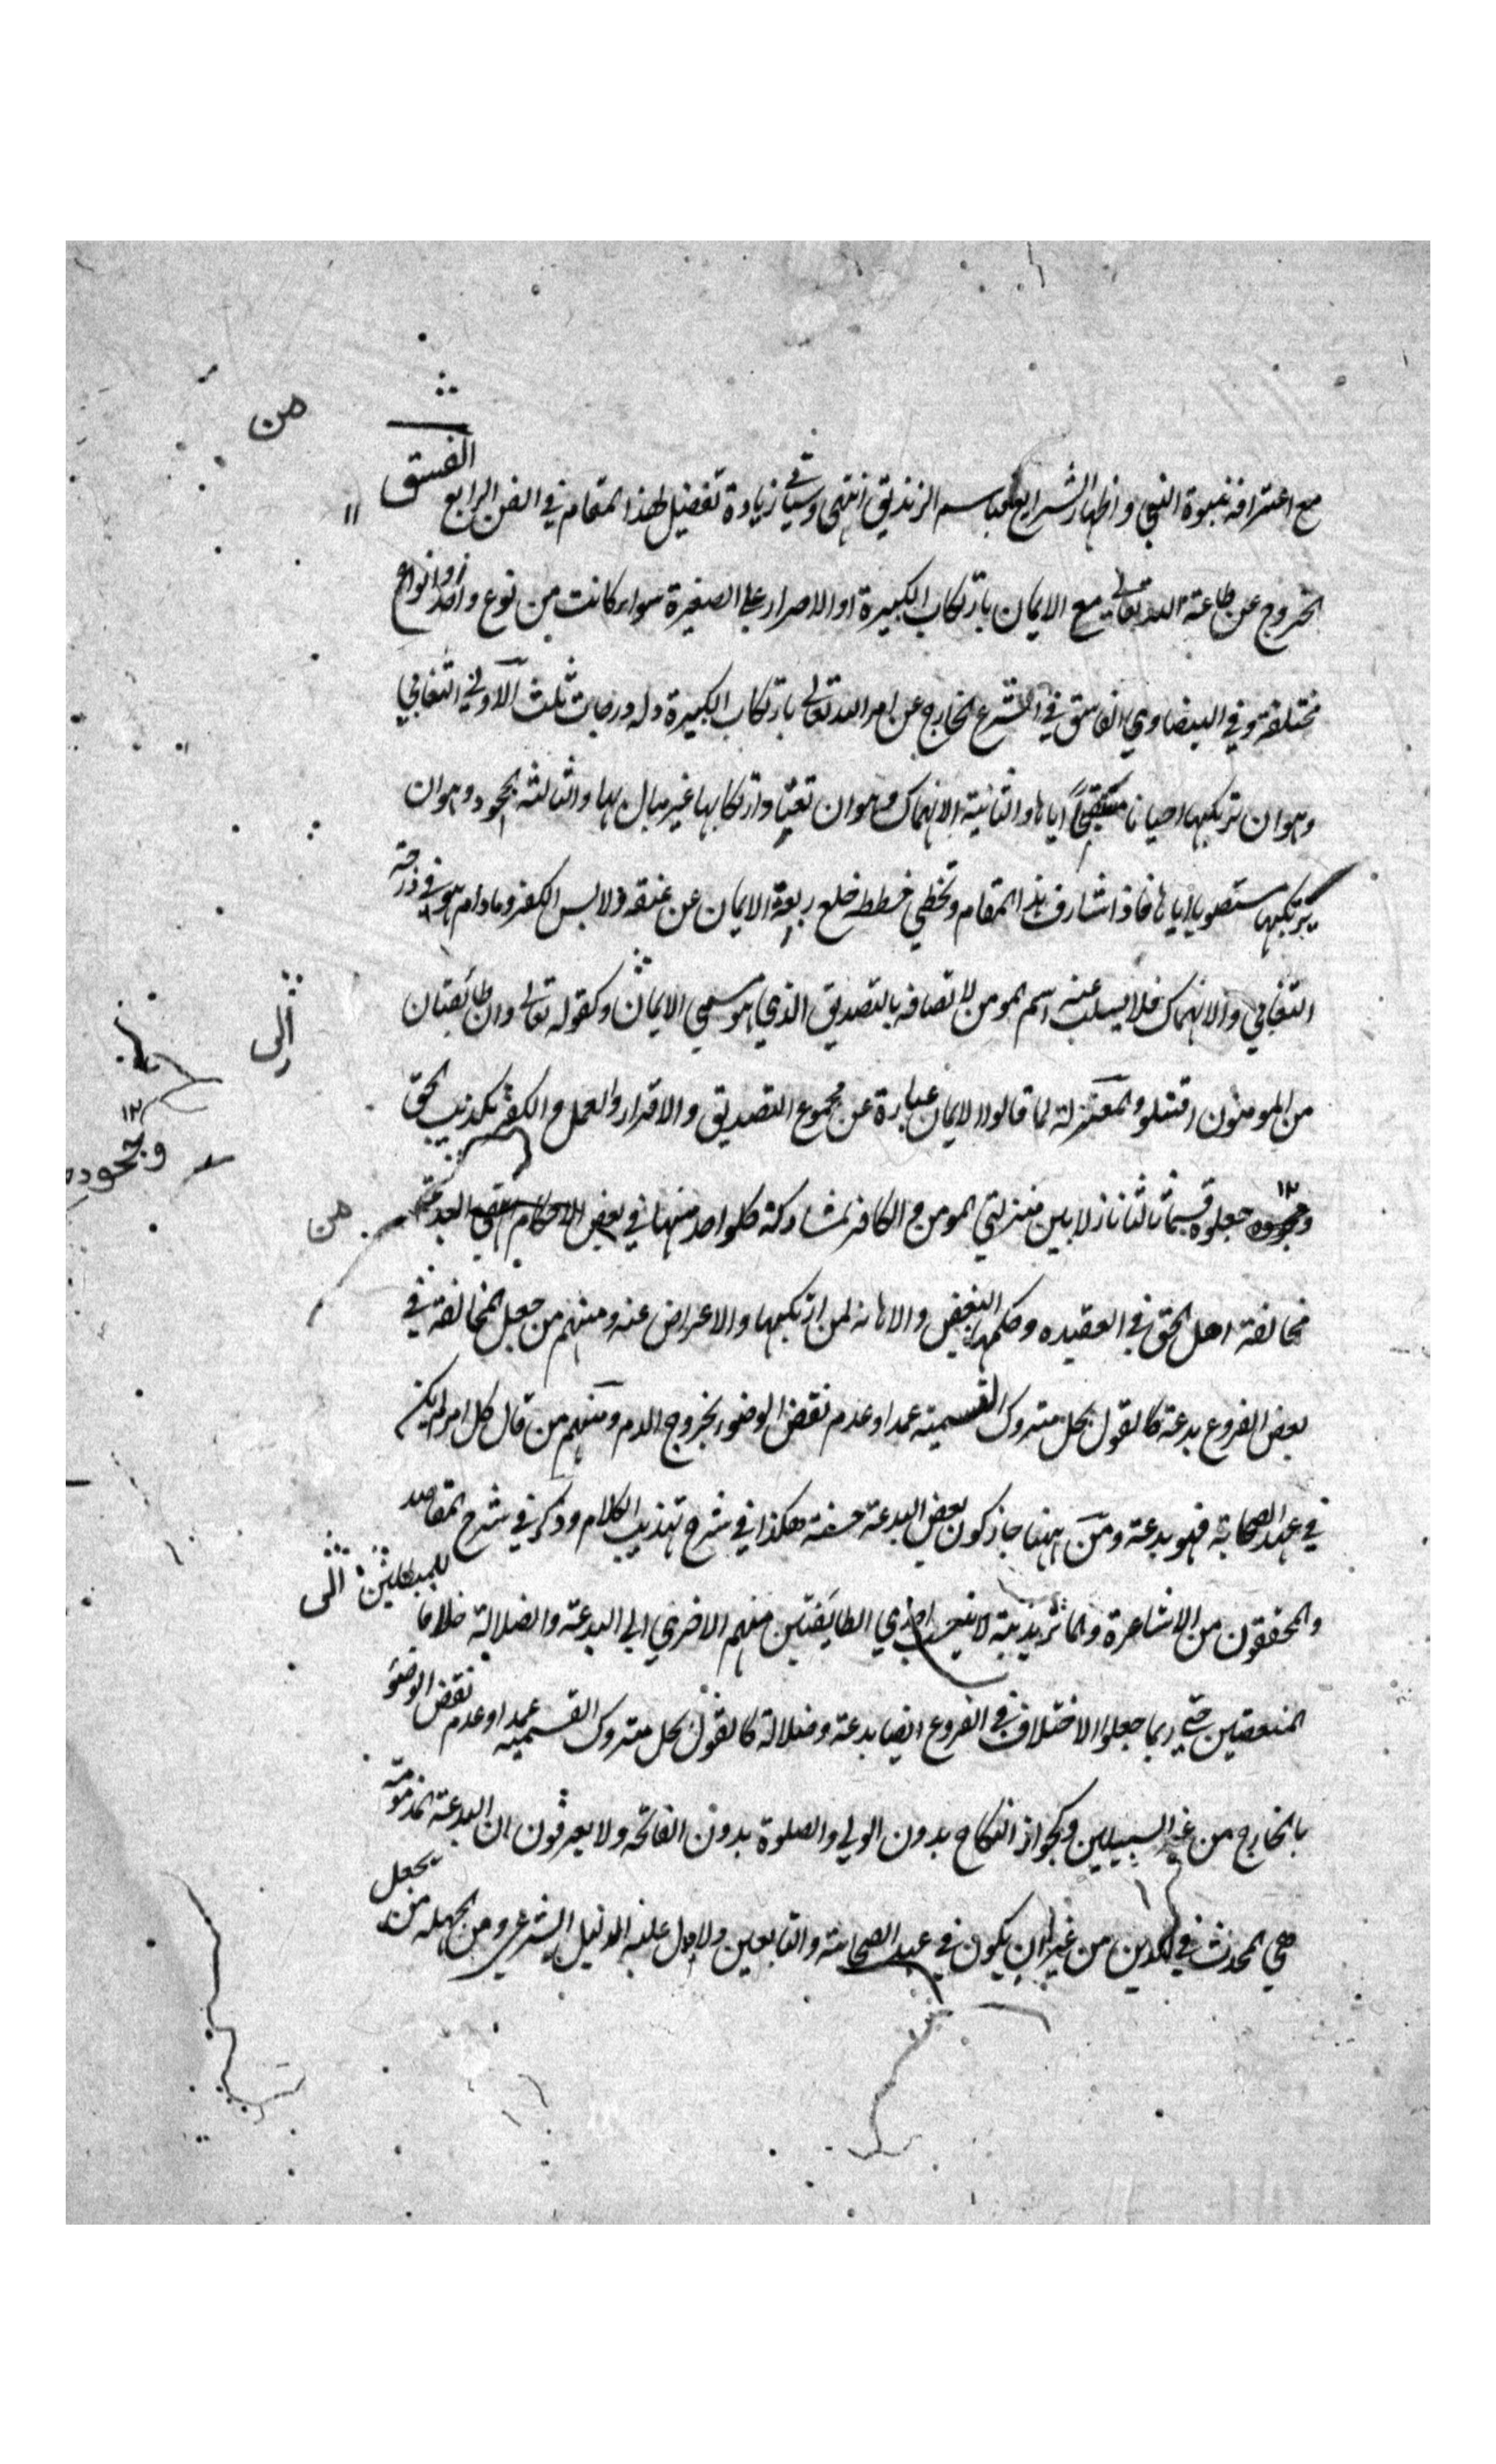 من
مع اعترافه بنبوة النبي واظهار الشرايع باسم الزنديق انتهى وسياتي زيادة تفصيل لهذا المقام في الفن الرابع الفسق
الخروج عن طاعة الله تعالى مع الايمان بارتكاب الكبيرة او الاصرار على الصغيرة سواء كانت من نوع واحد او انواع
مختلفة وفي البيضاوي الفاسق في الشرع الخارج عن امر الله تعالى بارتكاب الكبيرة وله درجات ثلث الاولى التغابي
وهو ان يرتكبها احيانا مستقبحا اياها والثانية الانهماك وهو ان تعتاد ارتكابها غير مبال بها والثالثة الجحود وهو ان
يرتكبها مستصوبا اياها فاذا شارف هذا المقام وتخطي خططه خلع ربقة الايمان عن عنقه ولابس الكفر وما دام هو في درجة
التغابي والانهماك فلا يسلب عنه اسم المومن لاتصافه بالتصديق الذي هو مسمى الايمان وكقوله تعالى وان طائفتان
الى
من المومنون اقتتلو والمعتزلة لما قالوا الايمان عبارة عن مجموع التصديق والاقرار والعمل والكفر تكذيب الحق
وجحوده
وجحوده جعلوه قسما ثالثا نازلا بين منزلتي المومن والكافر لمشاركة كلواحد منها في بعض الاحكام انتهى البدعة
من
مخالفة اهل الحق في العقيده وحكمها البغض والاهانه لمن ارتكبها والاعراض عنه ومنهم من جعل المخالفة في
بعض الفروع بدعة كالقول بحل متروك التسمية عمدا وعدم نقض الوضوء بخروج الدم ومنهم من قال كل امر لم يكن
في عهد الصحابة فهو بدعة ومن ههنا جاز كون بعض البدعة حسنة هكذا في شرح تهذيب الكلام وذكر في شرح المقاصد
والمحققون من الاشاعرة والماتريدية لا ينسب احدي الطايفتين منهم الاخري الى البدعة والضلالة خلافا للمبطلين
الى
المتعصبين حتى ربما جعلوا الاختلاف في الفروع ايضا بدعة وضلالة كالقول بحل متروك التسميه عمدا وعدم نقض الوضوء
بالخارج من غير السبيلين وكجواز النكاح بدون الولي والصلوة بدون الفاتحة ولا يعرفون ان البدعة المذمومة
هي المحدث في الدين من غير ان يكون في عهد الصحابة والتابعين ولا دل عليه الدليل الشرعي ومن الجهله من يجعل